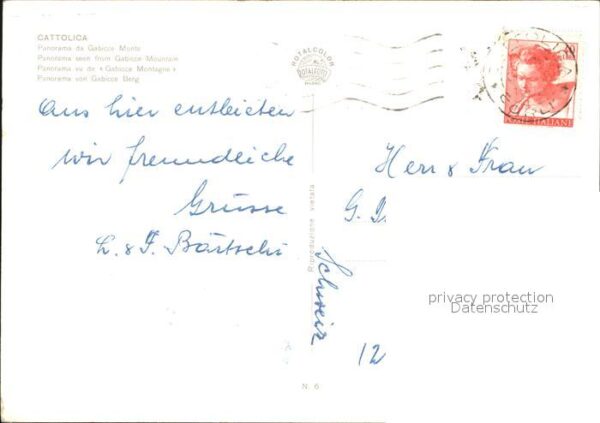 CATTOLICA
Panorama da Gabicce Monte
Panorama seen from Gabicce Mountain
Panorama vu de « Gabicce Montagne »
Panorama von Gabicce Berg
ROTALCOLOR
ROTALFOTO
MILANO
POSTE ITALIANE
Aus hier entbieten
wir freundliche
Grüsse
L. & F. Bärtschi
Herr & Frau
G. L.
Schweiz
12
Riproduzione vietata
N. 6
privacy protection
Datenschutz